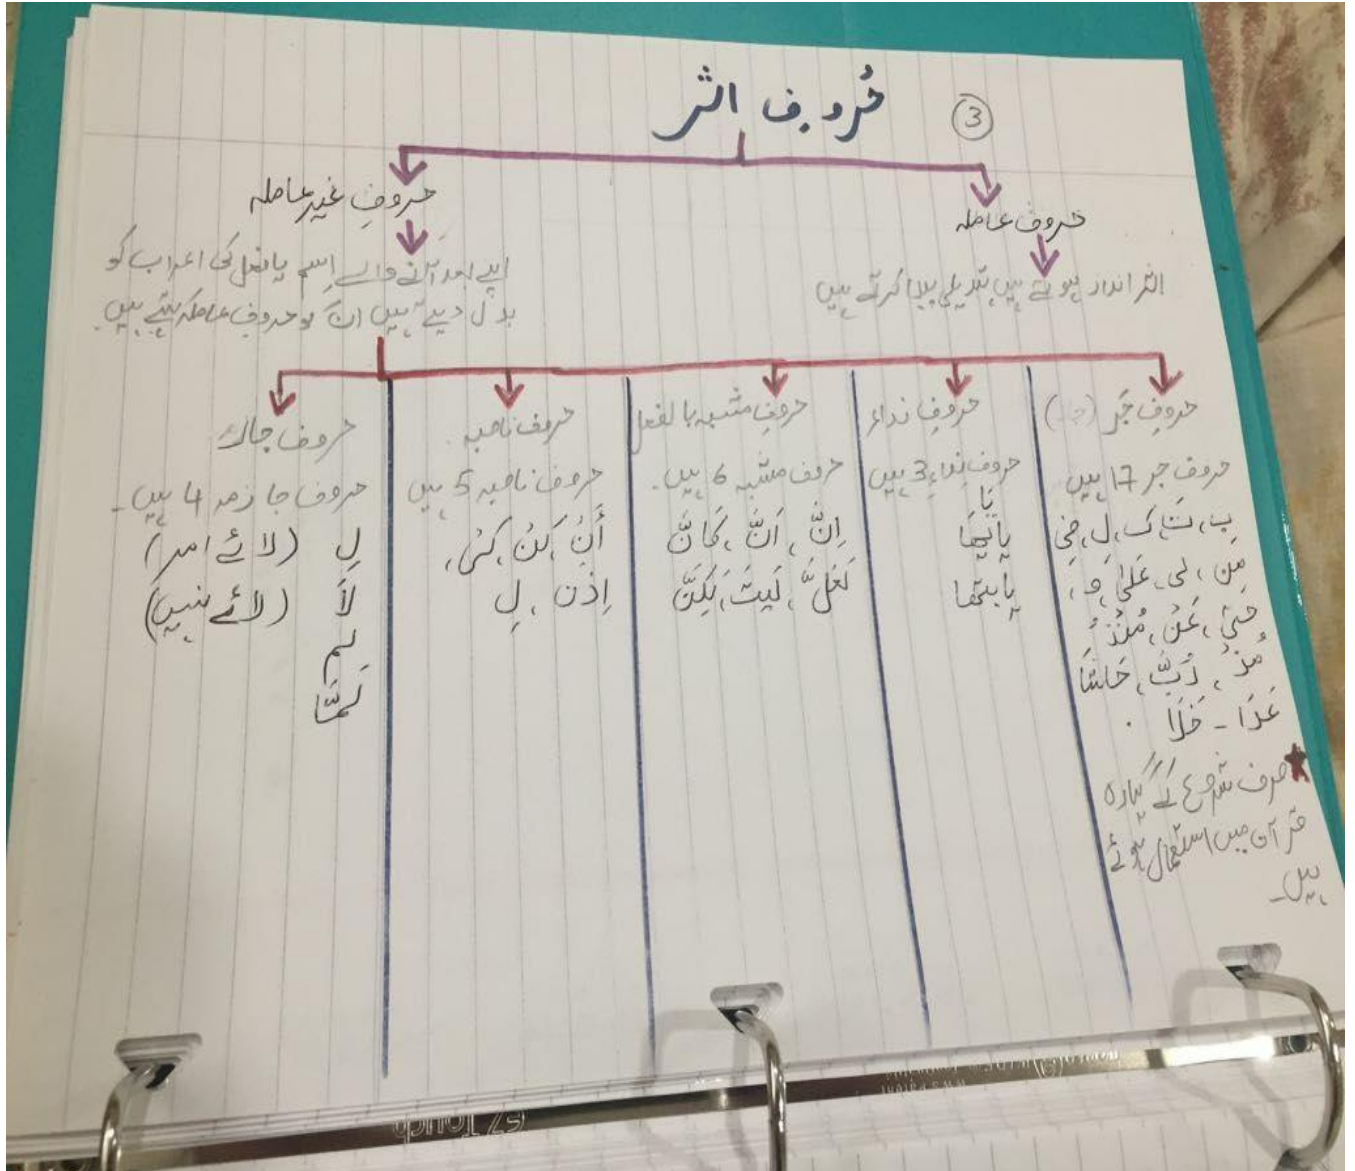 ③ حُروفِ اثر
حروفِ عاملہ
حروفِ غیر عاملہ
اثر انداز ہوتے ہیں تبدیلی پیدا کرتے ہیں
اپنے بعد آنے والے اِسم یا فعل کی اعراب کو
بدل دیتے ہیں ان کو حروفِ عاملہ کہتے ہیں۔
حروفِ جَر
حروف جر 17 ہیں
بِ، تَ، کَ، لِ،
مِن، لی، عَلیٰ، وَ،
حتیّٰ، عَنْ، مُنْذُ،
مُذْ، رُبَّ، حَاشَا
عَدَا ۔ خَلَا ۔
★ صرف شروع کے گیارہ
قرآن میں استعمال ہوئے
ہیں۔
حروفِ نداء
حروف نداء 3 ہیں
یَا
یاَیُّھَا
حروفِ مشبہ بالفعل
حروف مشبہ 6 ہیں۔
اِنَّ، اَنَّ، کَانَّ
لَعَلَّ، لَیتَ، لٰکِنَّ
حروف ناصبہ
حروف ناصبہ 5 ہیں
أَنْ، لَنْ، کَیْ،
اِذَن، لِ
حروف جاز
حروف جازمہ 4 ہیں۔
لِ (لائے امر)
لَا (لائے نہیں)
لَم
لَمَّا
EZ Touch